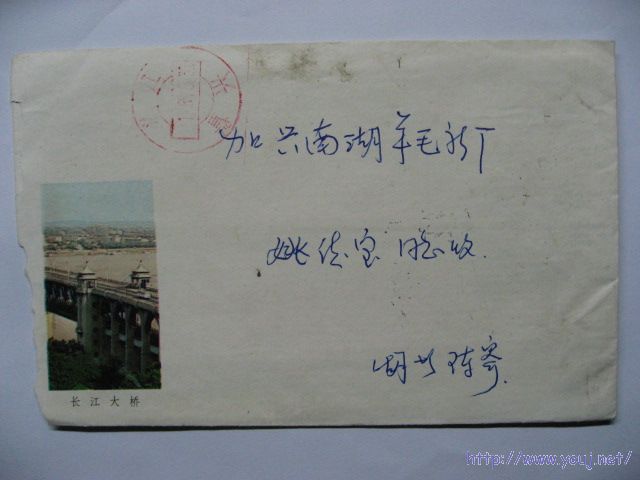 加兴南湖羊毛衫厂
姚佐宝 同志收
湖州 陈寄
长江大桥
http://www.youj.net/